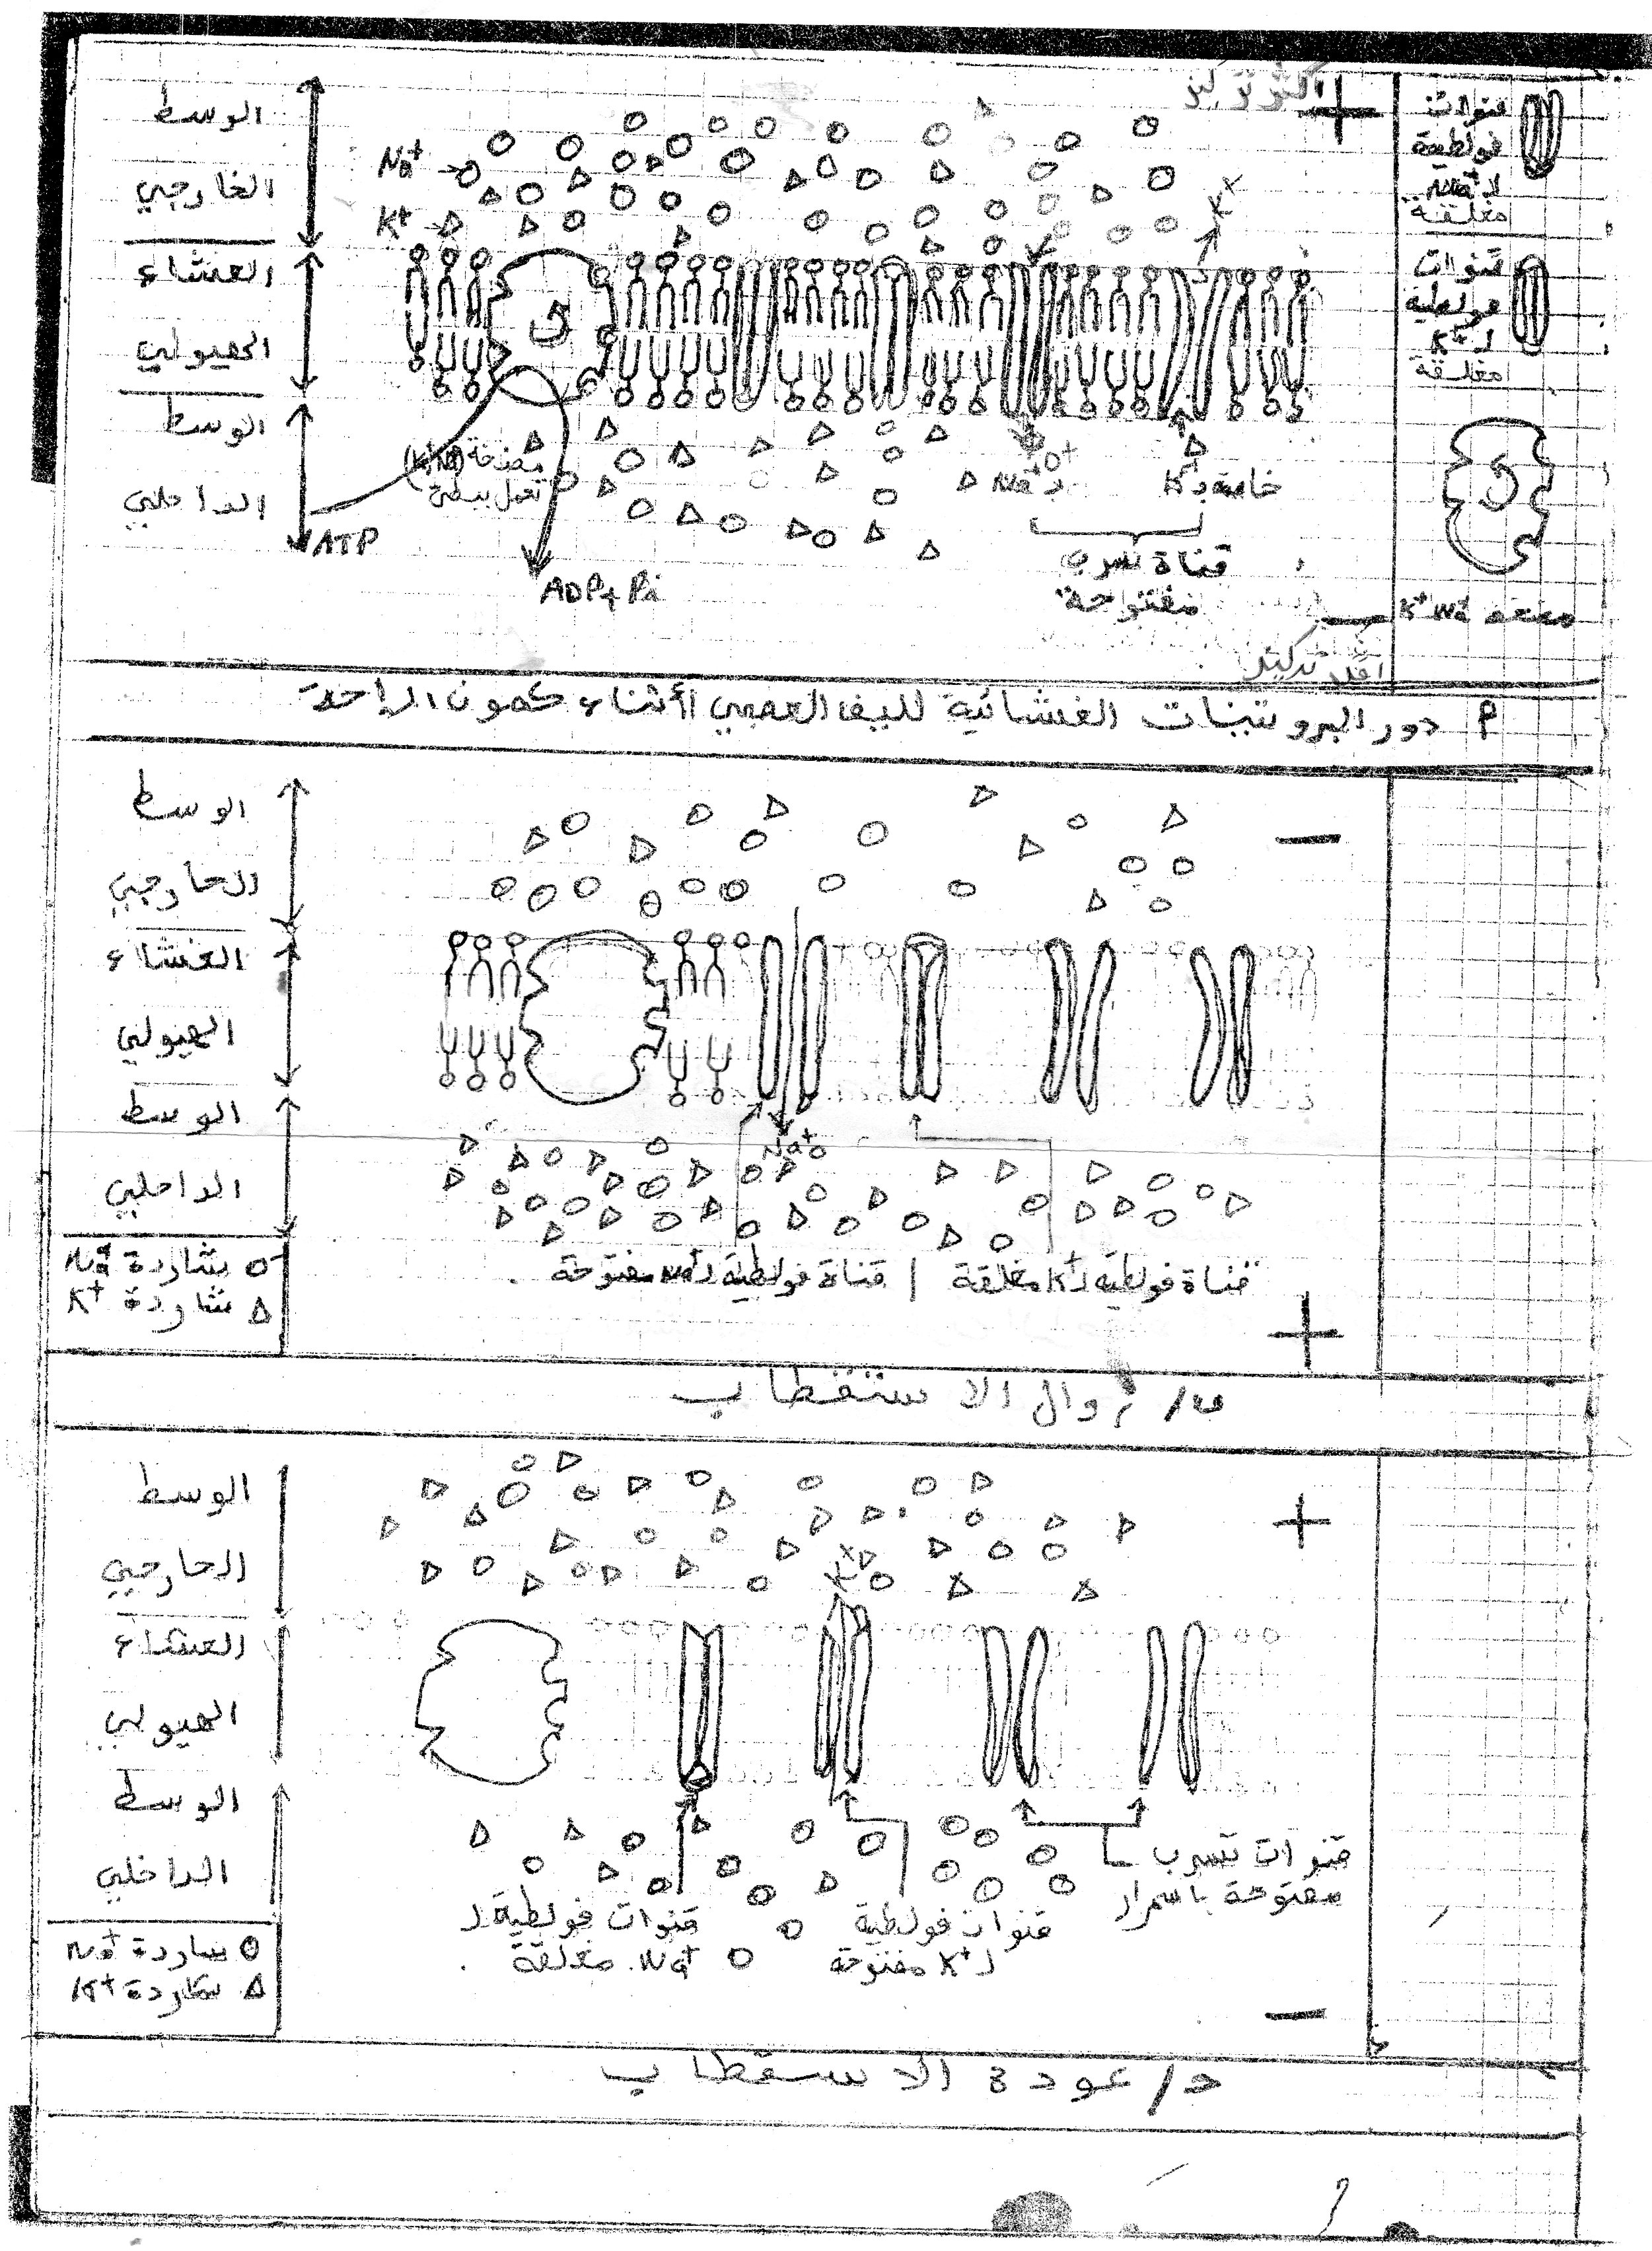 الوسط
الخارجي
الغشاء
الهيولي
الوسط
الداخلي
Na+
K+
أكثر تركيز
+
ATP
مضخة (K+/Na+)
تعمل ببطئ
ADP + Pi
لـ Na+
خاصة بـ K+
قناة تسرب
مفتوحة
−
أقل تركيز
قنوات
فولطية
لـ Na+
مغلقة
قنوات
فولطية
لـ K+
مغلقة
مضخة Na+ K+
أ دور البروتينات الغشائية لليف العصبي أثناء كمون الراحة
الوسط
الخارجي
الغشاء
الهيولي
الوسط
الداخلي
−
Na+
شاردة Na+
شاردة K+
قناة فولطية لـ K+ مغلقة | قناة فولطية لـ Na+ مفتوحة
+
ب/ زوال الاستقطاب
الوسط
الخارجي
الغشاء
الهيولي
الوسط
الداخلي
+
K+
قنوات تسرب
مفتوحة باسمرار
قنوات فولطية
لـ K+ مفتوحة
قنوات فولطية لـ
Na+ مغلقة
شاردة Na+
شاردة K+
−
د/ عودة الاستقطاب